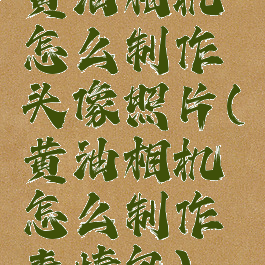 黄油相机
怎么制作
头像照片(
黄油相机
怎么制作
表情包)